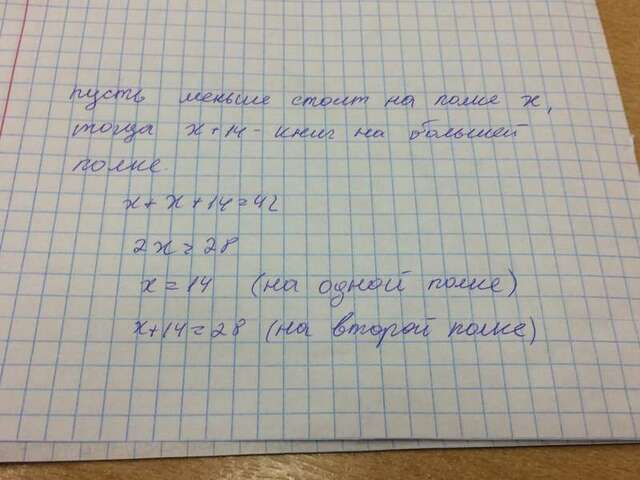 пусть меньше стоит на полке x,
тогда x + 14 - книг на большей
полке.
x + x + 14 = 42
2x = 28
x = 14 (на одной полке)
x + 14 = 28 (на второй полке)